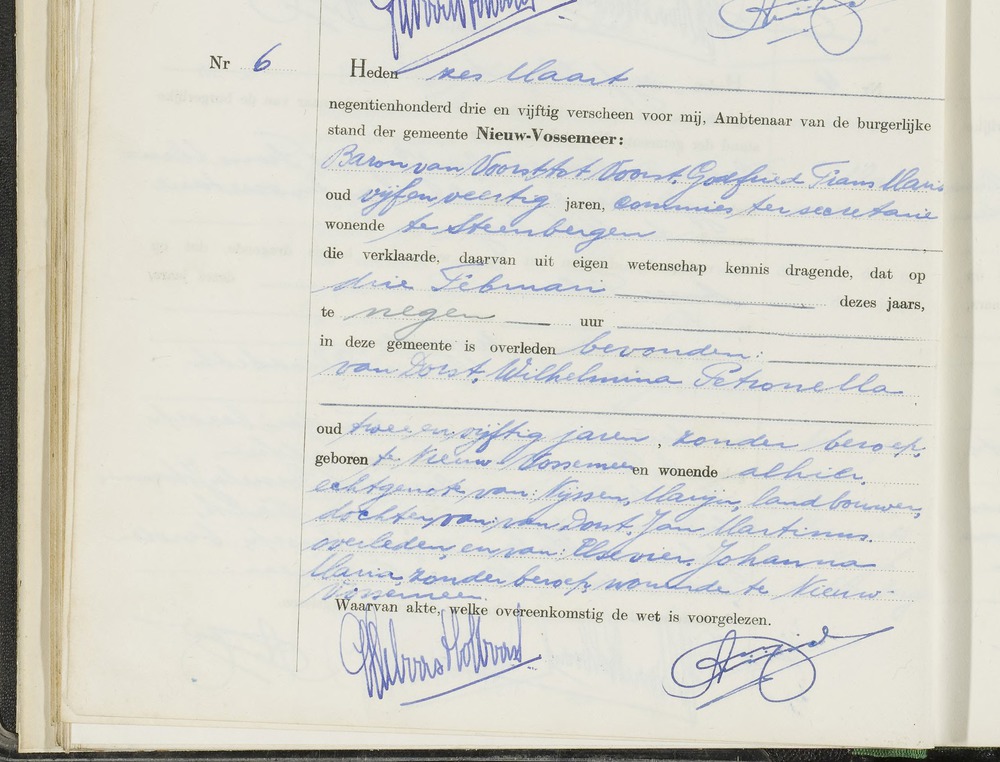 Nr 6
Heden zes Maart
negentienhonderd drie en vijftig verscheen voor mij, Ambtenaar van de burgerlijke
stand der gemeente Nieuw-Vossemeer:
Baron van Voorst tot Voorst, Godfried Frans Maria
oud vijfenveertig jaren, commies ter secretarie
wonende te Steenbergen
die verklaarde, daarvan uit eigen wetenschap kennis dragende, dat op
drie Februari dezes jaars,
te negen uur
in deze gemeente is overleden bevonden:
van Dorst, Wilhelmina Petronella
oud twee en vijftig jaren, zonder beroep,
geboren te Nieuw Vossemeer en wonende alhier,
echtgenote van: Nijssen, Marijn, landbouwer,
dochter van: van Dorst, Jan Martinus,
overleden, en van: Elsevier, Johanna
Maria, zonder beroep, wonende te Nieuw-
Vossemeer.
Waarvan akte, welke overeenkomstig de wet is voorgelezen.